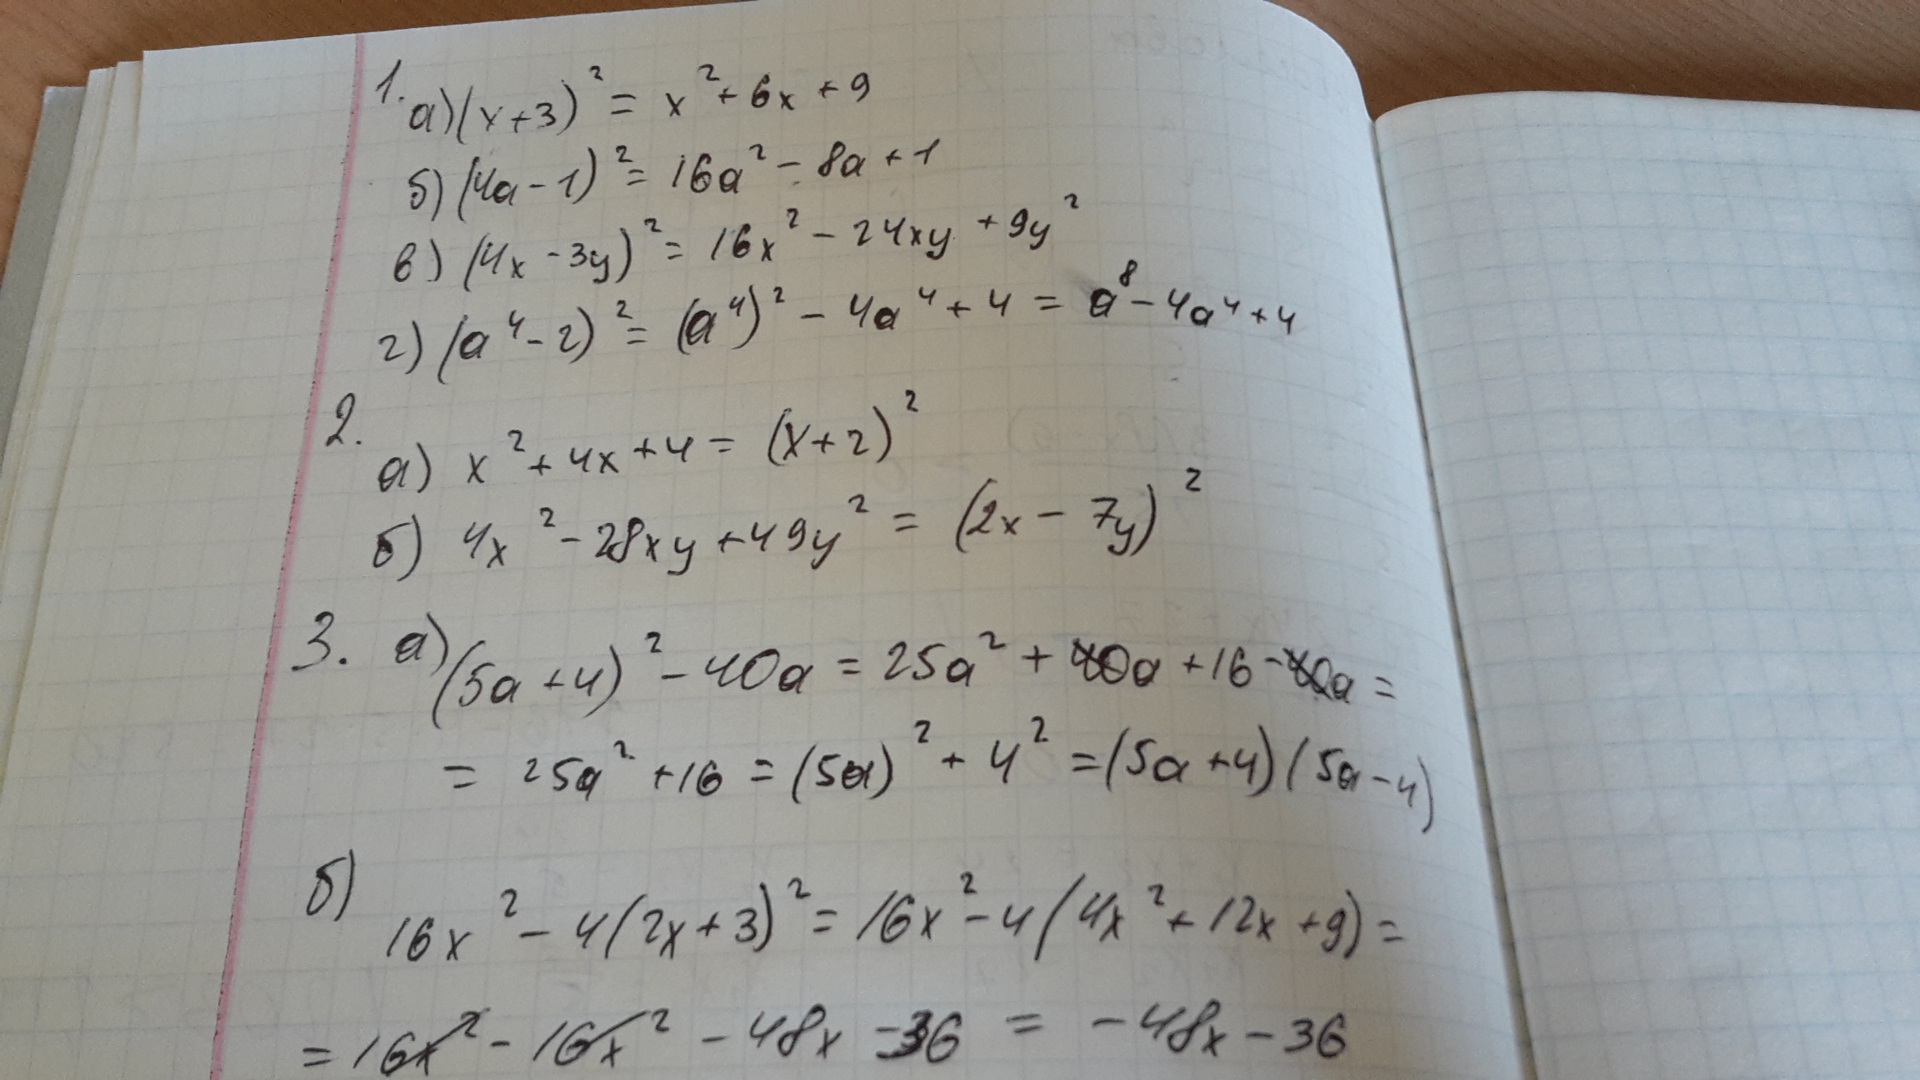 1. а) (x+3)² = x² + 6x + 9
б) (4a - 1)² = 16a² - 8a + 1
в) (4x - 3y)² = 16x² - 24xy + 9y²
г) (a⁴ - 2)² = (a⁴)² - 4a⁴ + 4 = a⁸ - 4a⁴ + 4
2.
а) x² + 4x + 4 = (x+2)²
б) 4x² - 28xy + 49y² = (2x - 7y)²
3. а) (5a + 4)² - 40a = 25a² + 40a + 16 - 40a =
= 25a² + 16 = (5a)² + 4² = (5a + 4)(5a - 4)
б)
16x² - 4(2x + 3)² = 16x² - 4(4x² + 12x + 9) =
= 16x² - 16x² - 48x - 36 = - 48x - 36